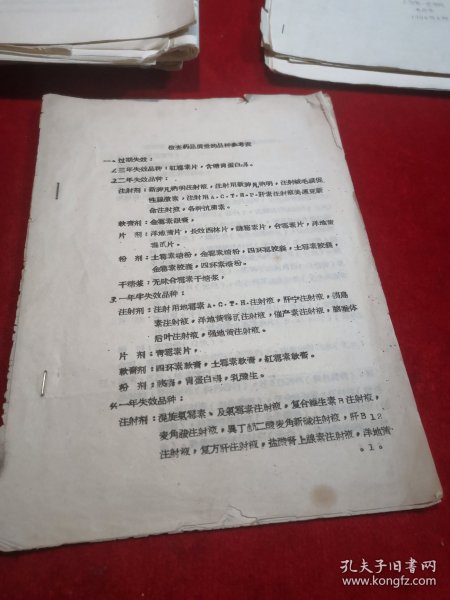 检查药品质量的品种参考资
一、过期失效：
1.三年失效品种：红霉素片，含糖胃蛋白酶。
2.二年失效品种：
注射剂：新胂凡纳明注射液，注射用新胂凡纳明，注射绒毛膜促
性腺激素，注射用A.C.T.H.P.肝素注射液
命注射液，各种抗菌素。
软膏剂：金霉素眼膏，
片 剂：洋地黄片，长效西林片，
粉 剂：土霉素糖粉，金霉素糖粉，四环胶囊，土霉素胶囊，
金霉素胶囊，四环素糖粉。
干糖浆：无味合霉素干糖浆，
3.一年半失效品种：
注射剂：注射用地霉素A.C.T.H.注射液，肝宁注射液，胰岛
素注射液，洋地黄毒甙注射液，催产素注射液，脑垂体
后叶注射液，强地黄注射液。
片 剂：青霉素片，
软膏剂：四环素软膏，土霉素软膏，红霉素软膏。
粉 剂：胰酶，胃蛋白酶，乳酸生。
4.一年失效品种：
注射剂：混旋氯霉素、及氯霉素注射液，复合维生素B注射液，
麦角酸注射液，异丁 二酸麦角新碱注射液，肝B12
注射液，复方肝注射液，盐酸肾上腺素注射液，洋地黄
。1。
孔夫子旧书网
www.kongfz.com